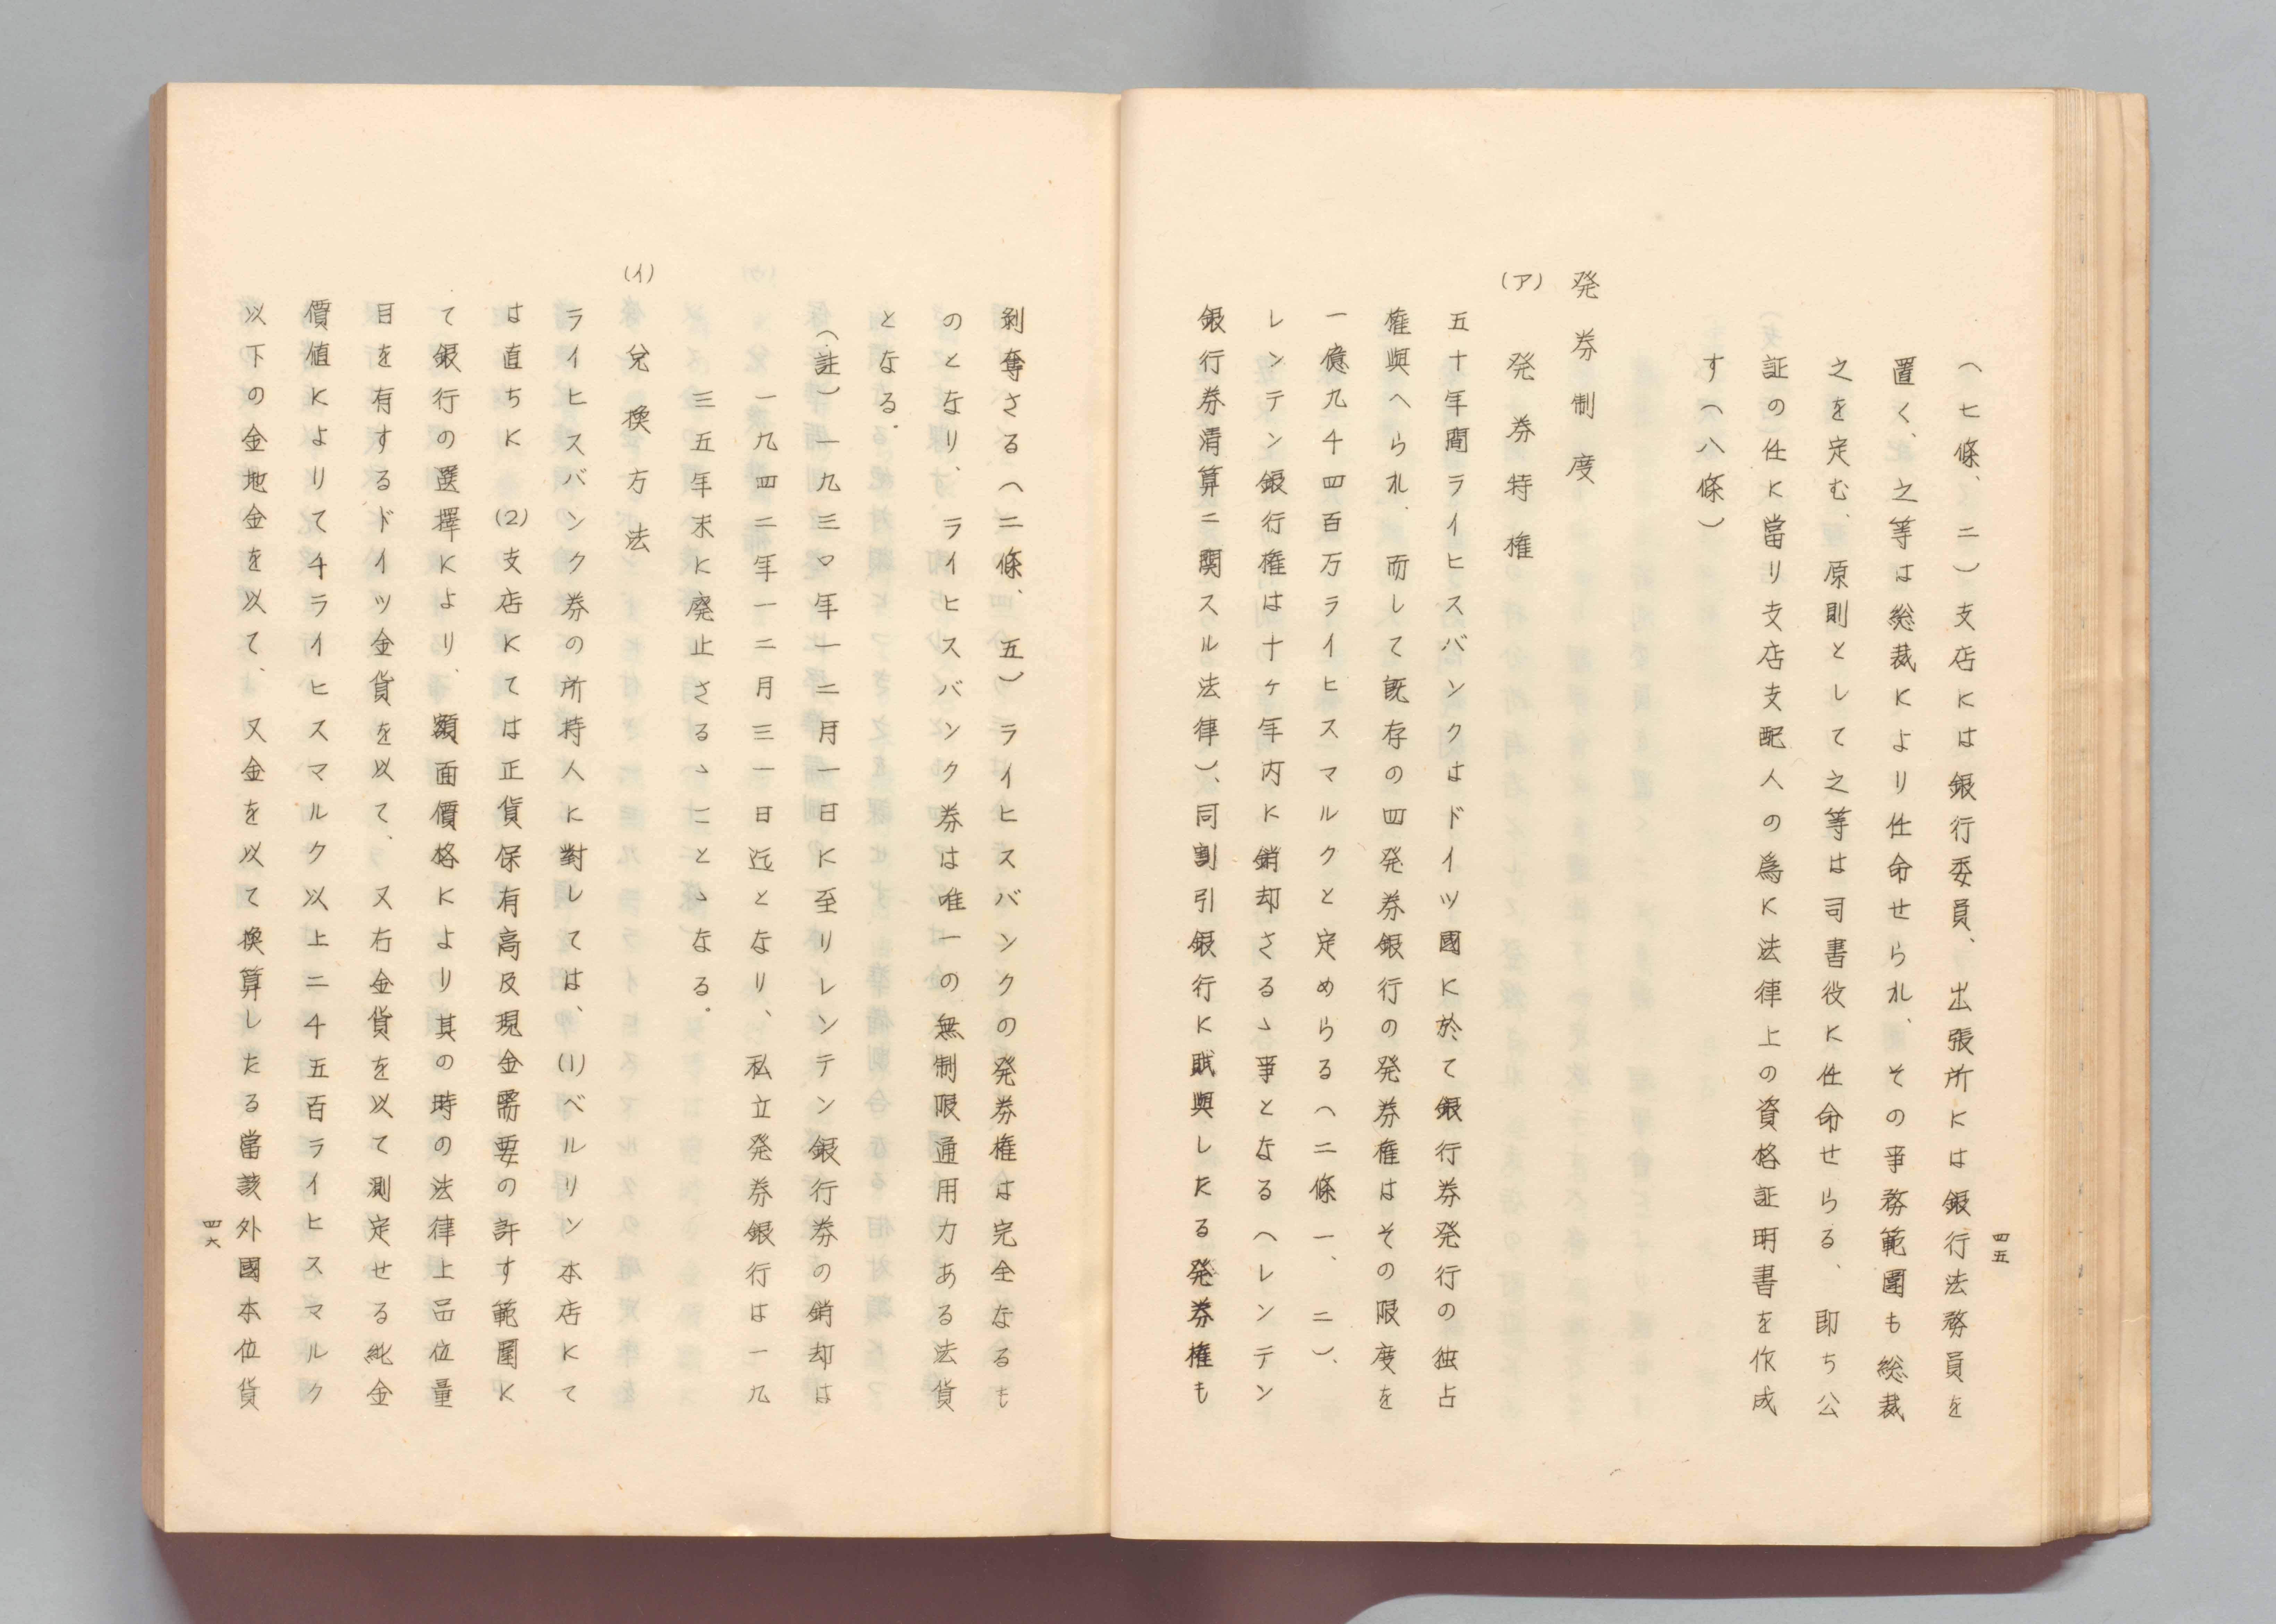 四五
(七條、二)支店には銀行委員、出張所には銀行法務員を
置く、之等は総裁により任命せられ、その事務範圍も総裁
之を定む、原則として之等は司書役に任命せらる、即ち公
証の任に當り支店支配人の爲に法律上の資格証明書を作成
す(八條)
発券制度
(ア)発券特権
五十年間ライヒスバンクはドイツ國に於て銀行券発行の独占
権與へられ、而して既存の四発券銀行の発券権はその限度を
一億九千四百万ライヒスマルクと定めらる(二條一、二)、
レンテン銀行権は十ヶ年内に銷却さるゝ事となる(レンテン
銀行券清算ニ関スル法律)、同割引銀行に賦與したる発券権も
剝奪さる(二條、五)ライヒスバンクの発券権は完全なるも
のとなり、ライヒスバンク券は唯一の無制限通用力ある法貨
となる.
(註)一九三〇年一二月一日に至りレンテン銀行券の銷却は
一九四二年一二月三一日迄となり、私立発券銀行は一九
三五年末に廃止さるゝことゝなる.
(イ)兌換方法
ライヒスバンク券の所持人に對しては、(1)ベルリン本店にて
は直ちに (2)支店にては正貨保有高及現金需要の許す範圍に
て銀行の選擇により、額面價格により其の時の法律上品位量
目を有するドイツ金貨を以て、又右金貨を以て測定せる純金
價値によりて千ライヒスマルク以上二千五百ライヒスマルク
以下の金地金を以て、又金を以て換算したる當該外國本位貨
四六